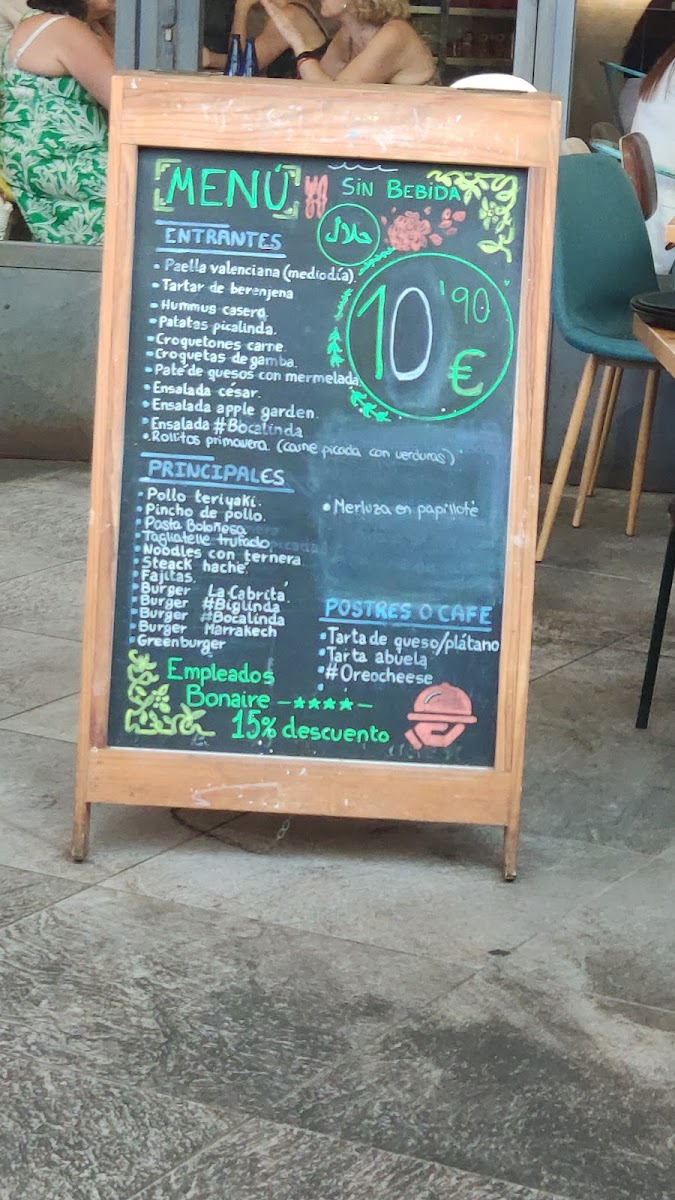 MENÚ
SIN BEBIDA
حلال
10'90
€
ENTRANTES
• Paella valenciana (mediodía).
• Tartar de berenjena
• Hummus casero.
• Patatas picalinda.
• Croquetones carne.
• Croquetas de gamba.
• Pate de quesos con mermelada
• Ensalada césar.
• Ensalada apple garden.
• Ensalada #Bocalinda
• Rollitos primavera (carne picada con verduras)
PRINCIPALES
• Pollo teriyaki.
• Pincho de pollo.
• Pasta Boloñesa
• Tagliatelle trufado
• Noodles con ternera
• Steack haché.
• Fajitas.
• Burger La Cabrita
• Burger #Biglinda
• Burger #Bocalinda
• Burger Marrakech
• Greenburger
• Merluza en papillote
POSTRES O CAFE
• Tarta de queso/plátano
• Tarta abuela
• #Oreocheese
Empleados
Bonaire
15% descuento